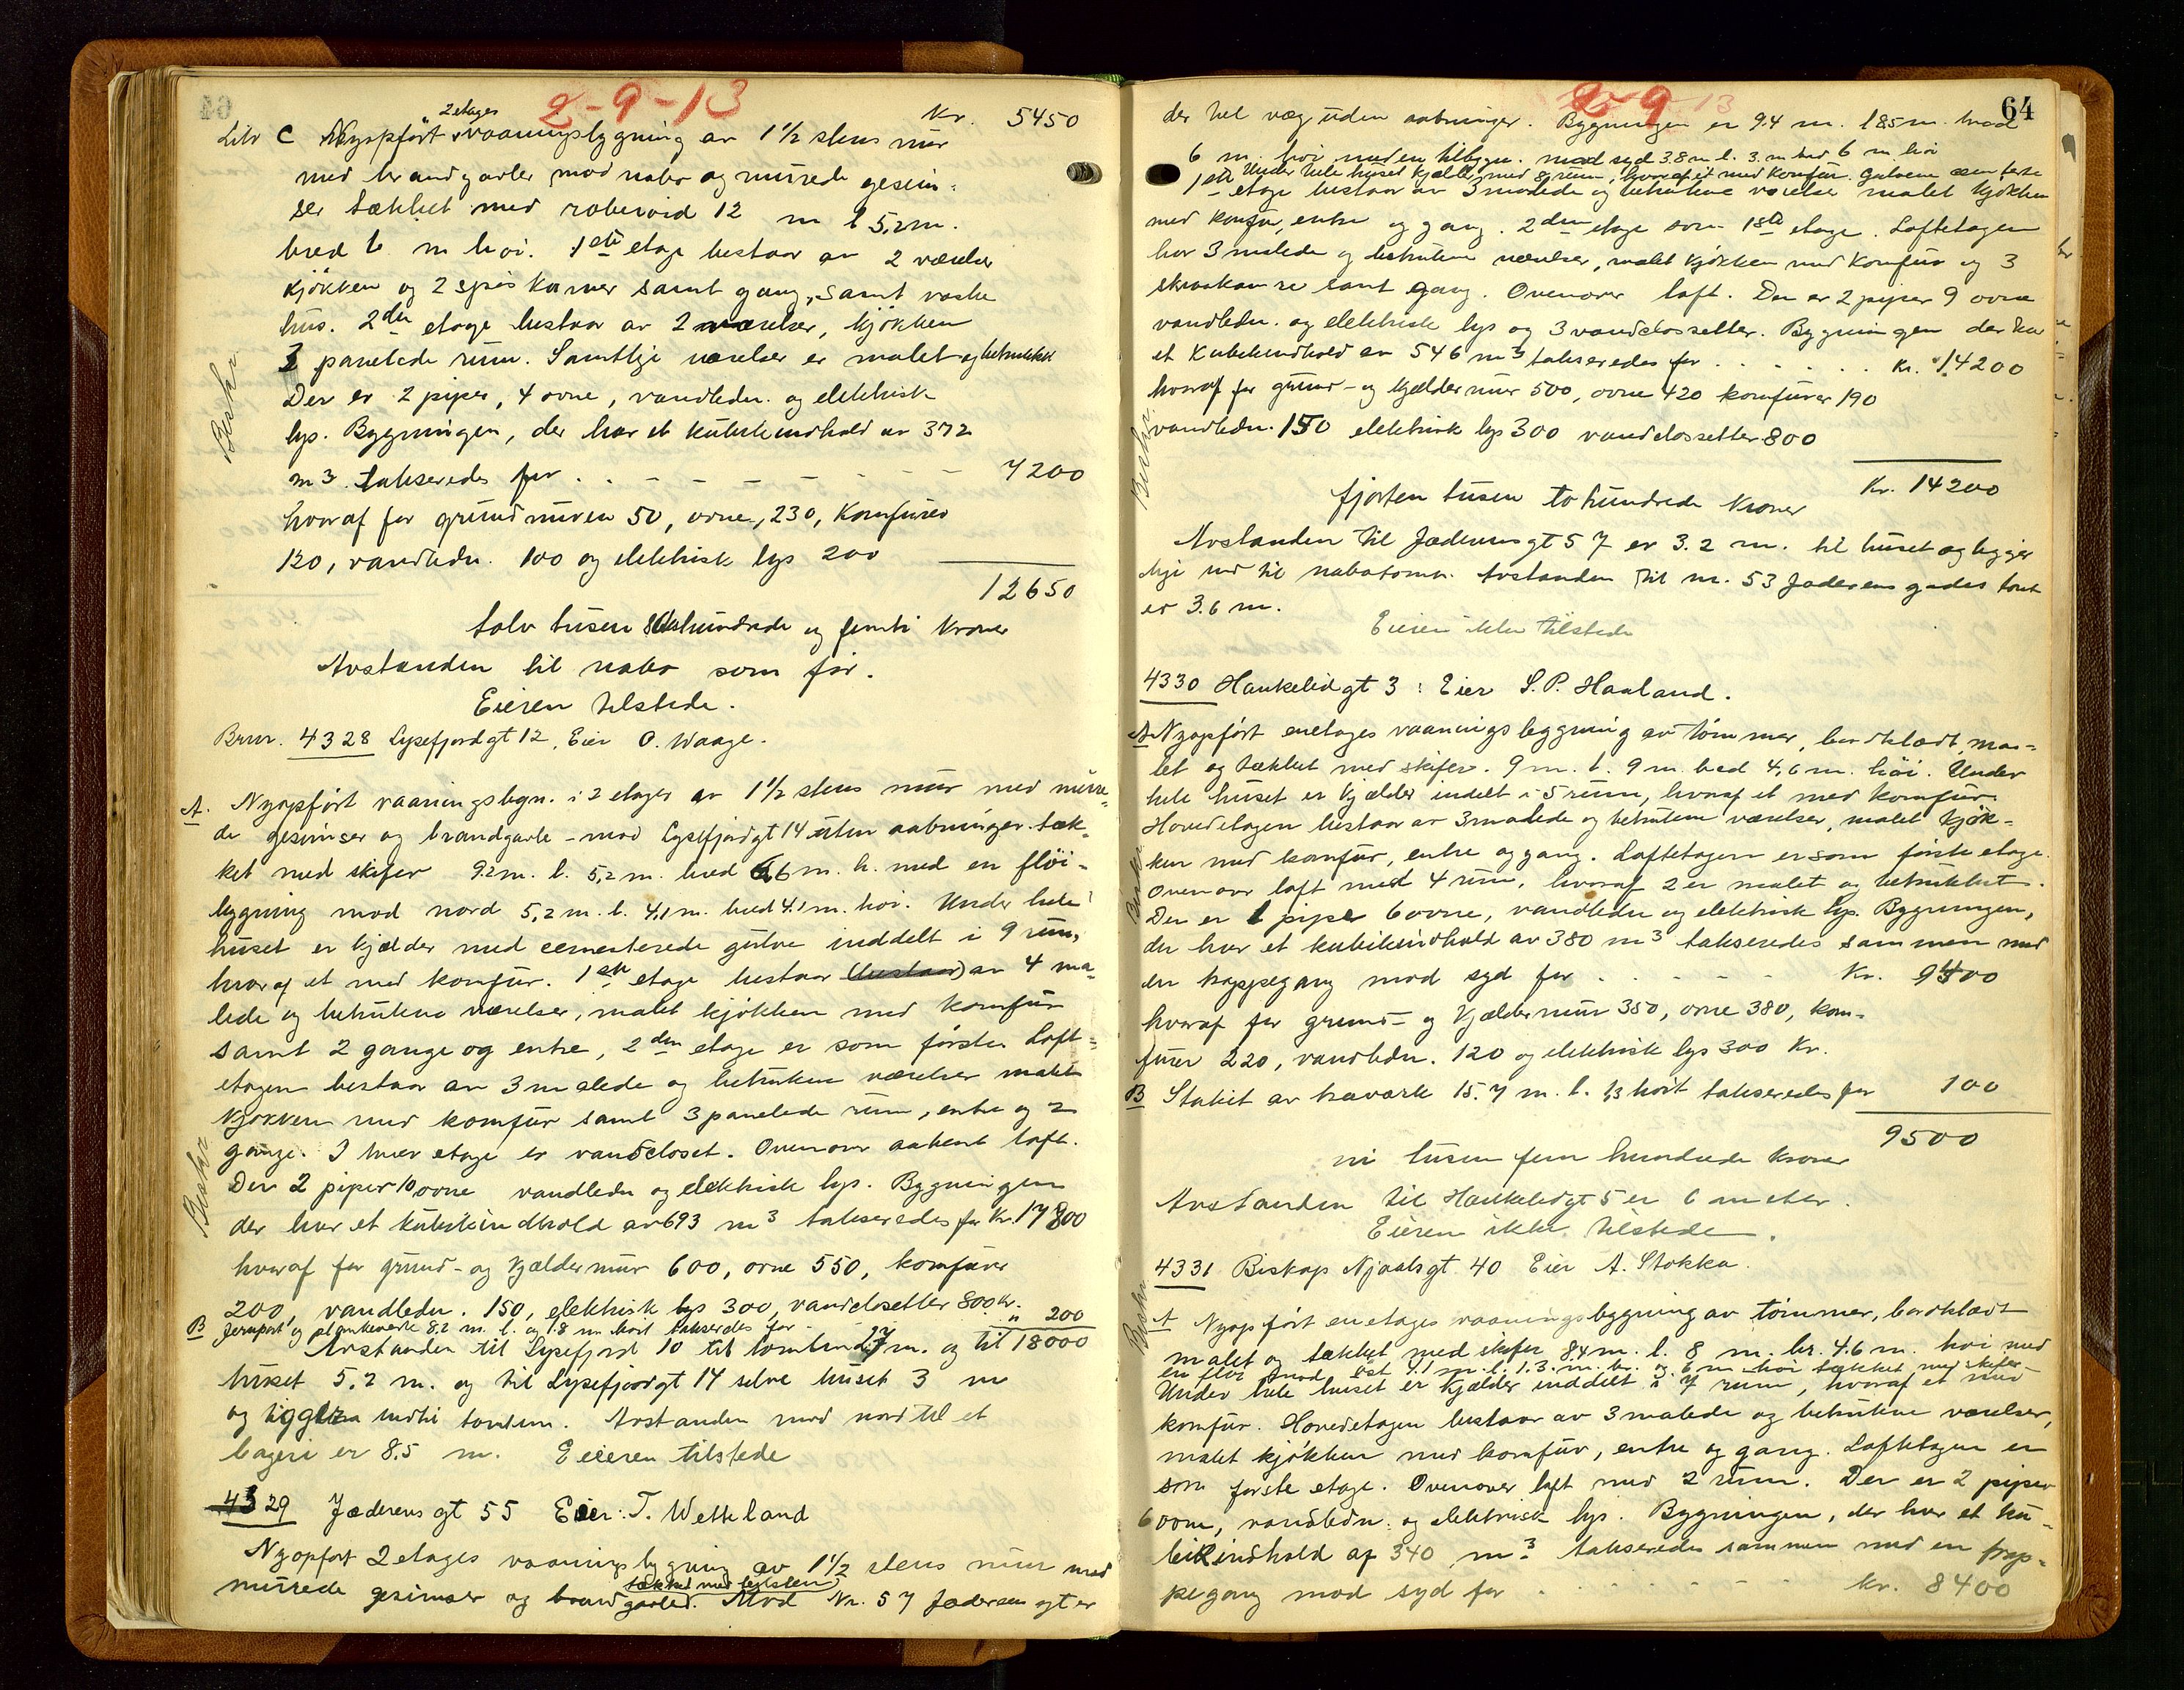 2-9-13
Kr. 5450
Litr C Nyopført 2 etages vaaningsbygning av 1 1/2 stens mur
med brandgavler mod nabo og murede gesim-
ser tækket med roberoid 12 m l 5,2 m.
bred 6 m høi. 1ste etage bestaar av 2 værelser
kjøkken og 2 spiskamer samt gang, samt vaske
hus. 2den etage bestaar av 2 værelser, kjøkken
3 panelede rum. Samtlige værelser er malet og betrukket
Der er 2 piper, 4 ovne, vandledn. og elektrisk
lys. Bygningen, der har et kubikindhold av 372
m3. takseredes for . . - - - - - - - 7200
hvoraf for grundmuren 50, ovne, 230, Komfurer
120, vandledn. 100 og elektrisk lys 200
12650
tolv tusen sekshundrede og femti Kroner
Avstanden til nabo som før.
Eieren tilstede.
Brnr. 4328 Lysefjordgt 12, Eier O. Waage.
A. Nyopført vaaningsbygn. i 2 etager av 1 1/2 stens mur med mure-
de gesimser og brandgavle - mod Lysefjordgt 14 uten aabninger. tæk-
ket med skifer 9.2 m. l. 5,2 m. bred 6,6 m. h. med en fløi-
bygning mod nord 5,2 m. l. 4,1 m. bred 4.1 m. høi. Under hele
huset er kjælder med cementerede gulve inddelt i 9 rum,
hvoraf et med komfur. 1ste etage bestaar (bestaar) av 4 ma-
lede og betrukne værelser, malet kjøkken med komfur
samt 2 gange og entre, 2den etage er som første. Loft-
etagen bestaar av 3 malede og betrukne værelser malet
Kjøkken med komfur samt 3 panelede rum, entre og 2
gange. I hver etage er vandcloset. Ovenover aabent loft.
Der 2 piper 10 ovne vandledn og elektrisk lys. Bygningen
der har et kubikindhold av 693 m3 takseredes for Kr. 17800
hvoraf for grund- og kjældermur 600, ovne 550, komfurer
200, vandledn. 150, elektrisk lys 300, vandclosetter 800 kr.
B Jernport og plankeverk 8,2 m. l. og 1.8 m. høit takseredes for - - " 200
Avstanden til Lysefjord 10 til tomten 2,7 m. og til 18000
huset 5.2 m. og til Lysefjordgt 14 selve huset 3 m
og ligger indtil tomten. Avstanden mod nord til et
bageri er 8.5 m. Eieren tilstede
4329 Jæderens gt 55 Eier: T. Wetteland
Nyopført 2 etages vaaningsbygning av 1 1/2 stens mur med
murede gesimser og brandgavler. tækket med teglsten Mod Nr. 57 Jæderens gt er
Beskr.
Beskr
2-9-13
64
der hel væg uden aabninger. Bygningen er 9.4 m. l 8.5 m. bred
6 m. høi med en tilbygn. mod syd 3.8 m l. 3. m bred 6 m. høi
Under hele huset kjælder med 8 rum, hvoraf et med Komfur. Gulvene cementerte
1ste etage bestaar av 3 malede og betrukne værelser malet Kjøkken
med Komfur, entre og gang. 2den etage som 1ste etage. Loftetagen
har 3 malede og betrukne værelser, malet Kjøkken med Komfur og 3
skraakamre samt gang. Ovenover loft. Der er 2 piper 9 ovne
vandledn. og elektrisk lys og 3 vandclosetter. Bygningen der har
et Kubikindhold av 546 m3 takseredes for . . . . . . Kr. 14200
hvoraf for grund- og kjældermur 500, ovne 420 komfurer 190
vandledn. 150 elektrisk lys 300 vandclossetter 800
Kr. 14200
fjorten tusen to hundrede Kroner
Avstanden til Jæderensgt 57 er 3.2 m. til huset og ligger
like ind til nabotomt. Avstanden til nr. 53 Jæderens gades tomt
er 3.6 m.
Eieren ikke tilstede
4330 Haukelidgt 3: Eier S. P. Haaland.
A Nyopført enetages vaaningsbygning av tømmer, bordklædt, ma-
let og tækket med skifer. 9 m. l. 9 m. bred 4,6 m. høi. Under
hele huset er Kjælder indelt i 5 rum, hvoraf et med komfur.
Hovedetagen bestaar av 3 malede og betrukne værelser, malet kjøk-
ken med komfur, entre og gang. Loftetagen er som første etage.
Ovenover loft med 4 rum, hvoraf 2 er malet og betrukket.
Der er 1 pipe 6 ovne, vandledn og elektrisk lys. Bygningen,
der har et kubikindhold av 380 m3 takseredes sammen med
en trappegang mod syd for . . - - - - Kr. 9400
hvoraf for grund- og Kjældermur 350, ovne 380, kom-
furer 220, vandledn. 120 og elektrisk lys 300 Kr.
B Stakit av træverk 15.7 m. l. 1,3 høit takseredes for 100
9500
ni tusen fem hundrede kroner
Avstanden til Haukelidgt 5 er 6 meter.
Eieren ikke tilstede.
4331 Biskop Njaalsgt. 40 Eier A. Stokka.
A Nyopført enetages vaaningsbygning av tømmer, bordklædt
malet og tækket med skifer 8,4 m. l. 8 m. br. 4.6 m. høi med
en fløi mod øst 4.1 m. l. 1.3. m. br. og 6 m. høi tækket med skifer
Under hele huset er Kjælder inddelt i 7 rum, hvoraf et med
komfur. Hovedetagen bestaar av 3 malede og betrukne værelser,
malet kjøkken med komfur, entre og gang. Loftetagen er
som første etage. Ovenover loft med 2 rum. Der er 2 piper
6 ovne, vandledn. og elektrisk lys. Bygningen, der har et ku-
bikindhold af 340 m3 takseredes sammen med en trap-
pegang mod syd for . . . . - - - kr. 8400
Beskr.
Beskr
Beskr